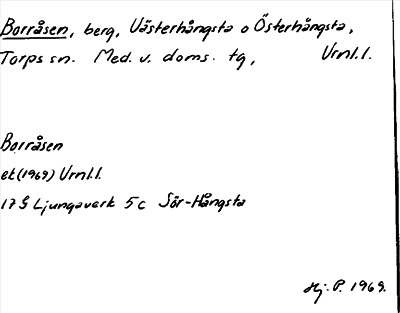 Borråsen, berg, Västerhångsta o Österhångsta,
Torps sn. Med. v. doms. tg, Vrnl.l.
Borråsen
ek (1969) Vrnl.l.
17 G Ljungaverk 5 c Sör-Hångsta
Hj. P. 1969.